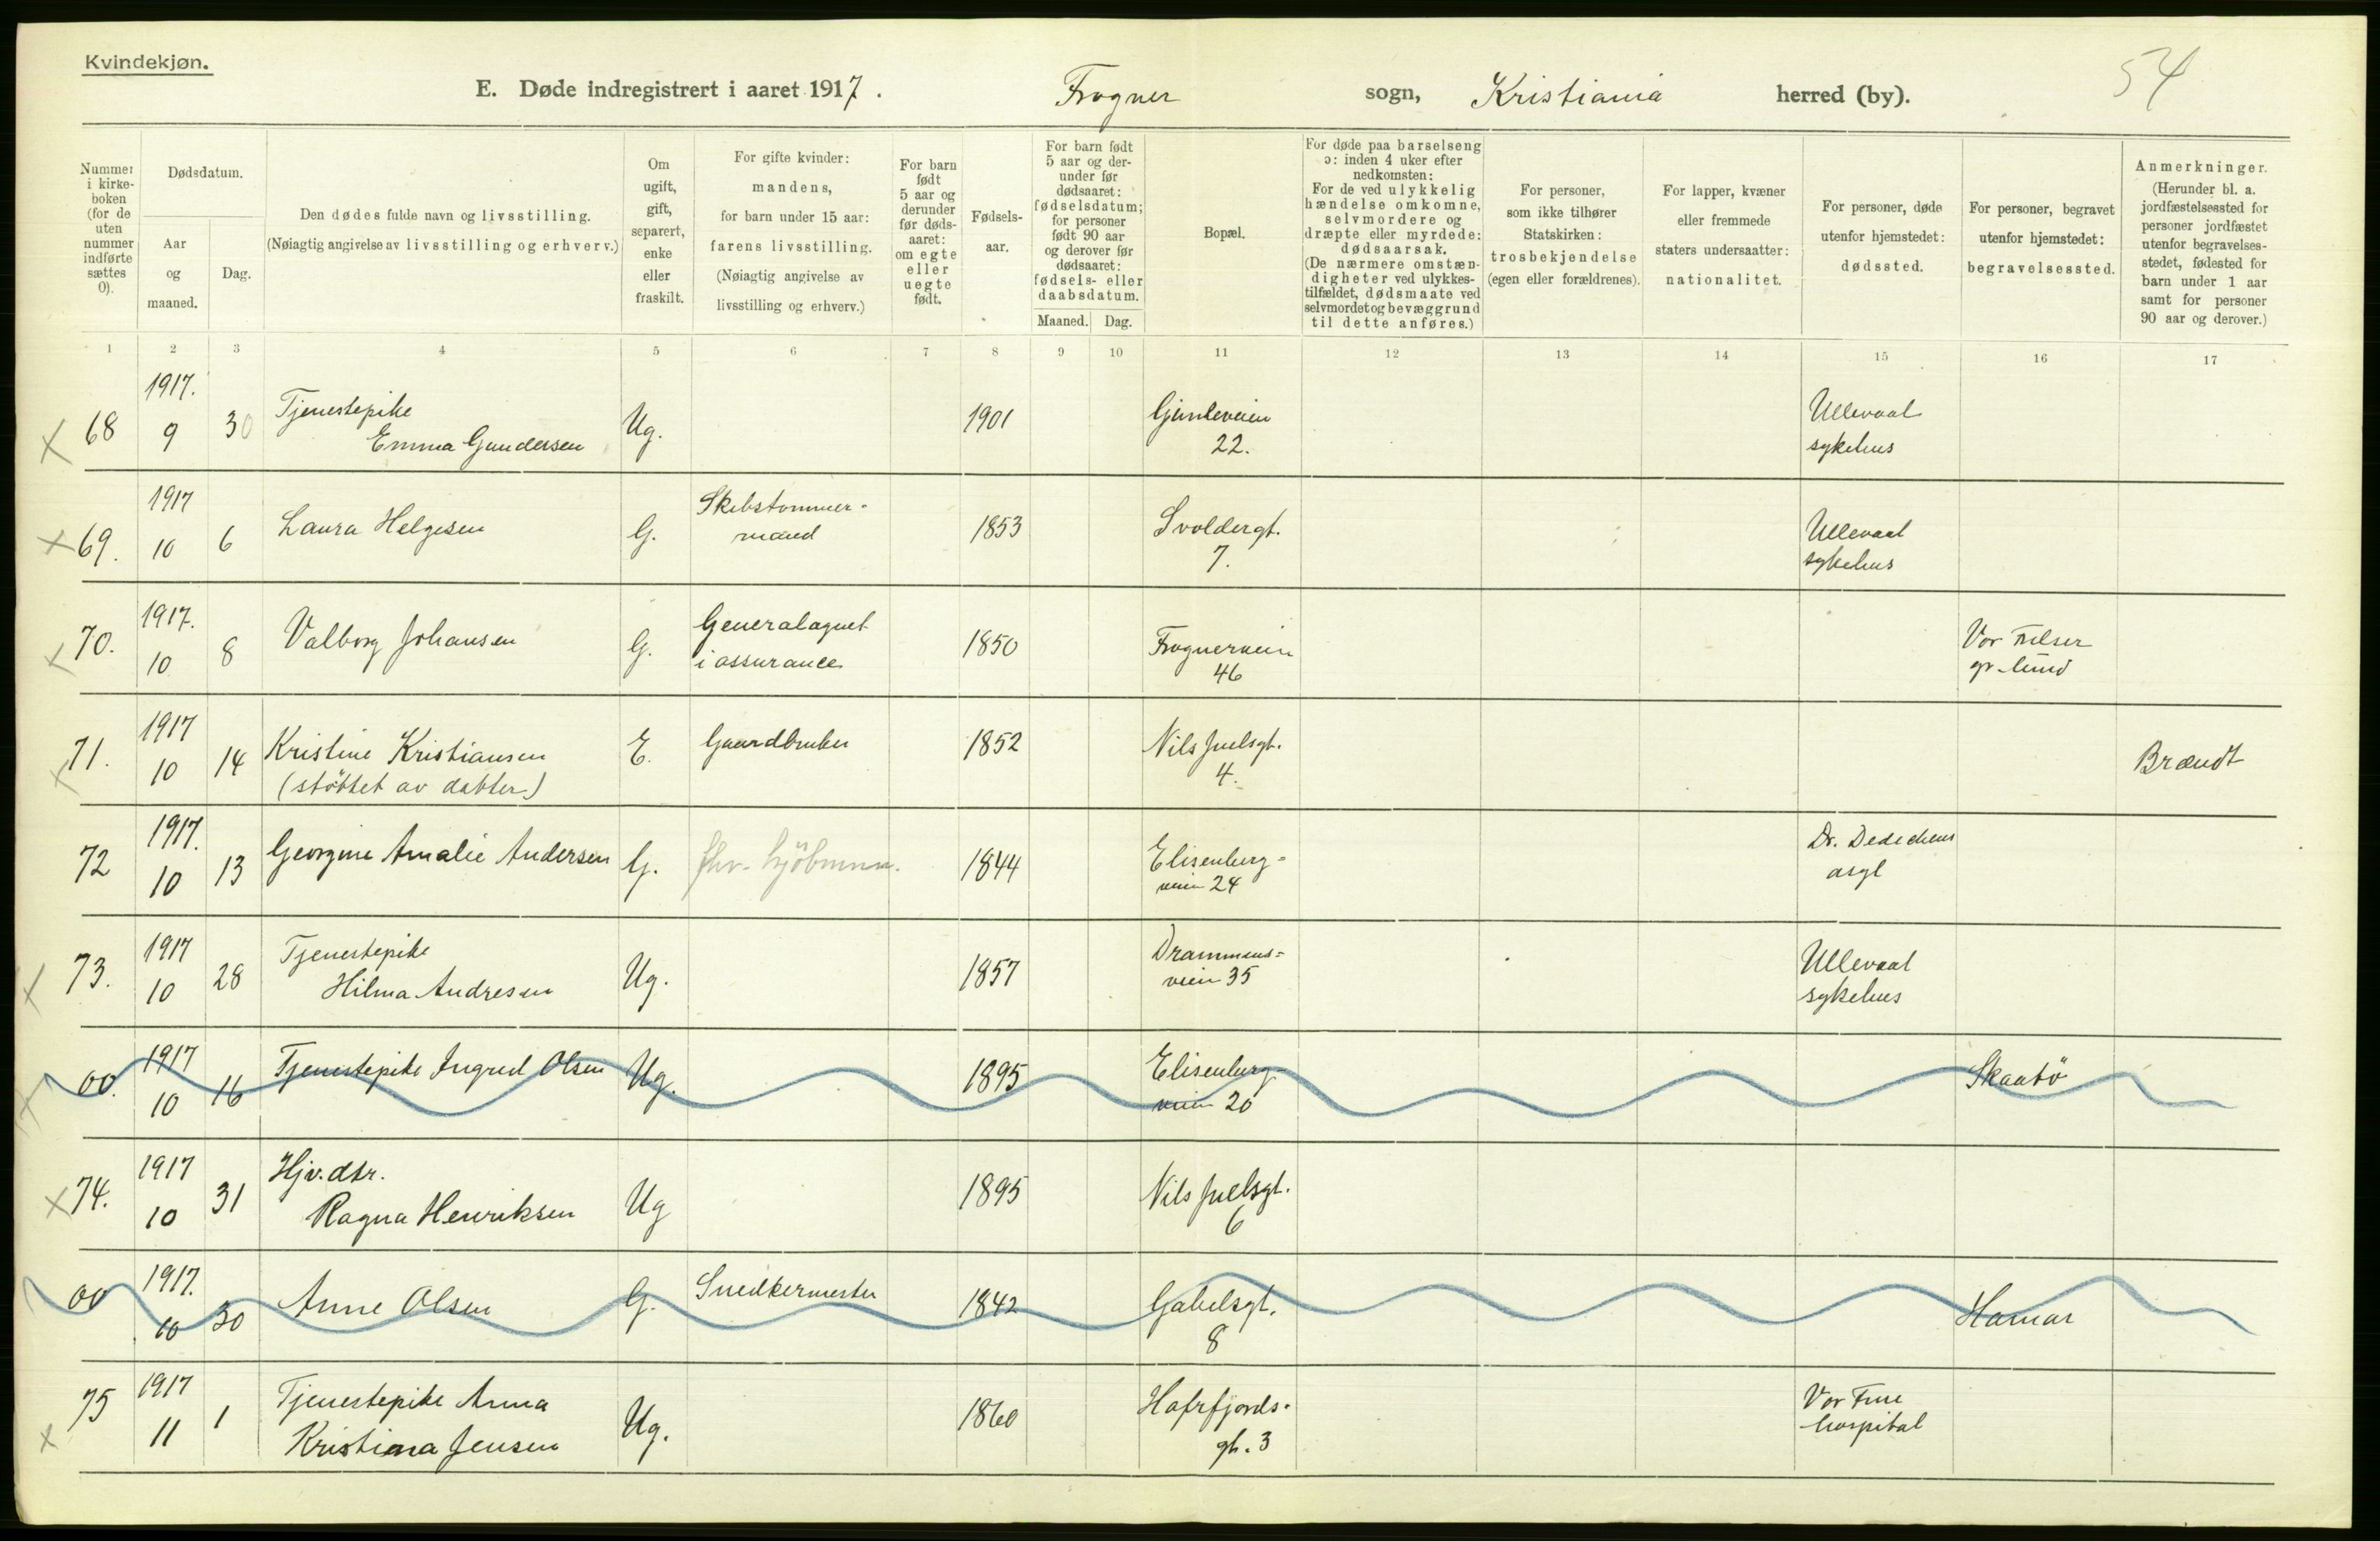 Kvindekjøn.
E. Døde indregistrert i aaret 1917. Frogner sogn, Kristiania herred (by). 54
Nummer i kirkeboken (for de uten nummer indførte sættes 0).
Dødsdatum.
Aar og maaned.
Dag.
Den dødes fulde navn og livsstilling.
(Nøiagtig angivelse av livsstilling og erhverv.)
Om ugift, gift, separert, enke eller fraskilt.
For gifte kvinder: mandens, for barn under 15 aar: farens livsstilling. (Nøiagtig angivelse av livsstilling og erhverv.)
For barn født 5 aar og derunder før dødsaaret: om egte eller uegte født.
Fødselsaar.
For barn født 5 aar og derunder før dødsaaret: fødselsdatum; for personer født 90 aar og derover før dødsaaret: fødsels- eller daabsdatum.
Maaned. Dag.
Bopæl.
For døde paa barselseng ɔ: inden 4 uker efter nedkomsten: For de ved ulykkelig hændelse omkomne, selvmordere og dræpte eller myrdede: dødsaarsak. (De nærmere omstændigheter ved ulykkestilfældet, dødsmaate ved selvmordet og bevæggrund til dette anføres.)
For personer, som ikke tilhører Statskirken: trosbekjendelse (egen eller forældrenes).
For lapper, kvæner eller fremmede staters undersaatter: nationalitet.
For personer, døde utenfor hjemstedet: dødssted.
For personer, begravet utenfor hjemstedet: begravelsessted.
Anmerkninger. (Herunder bl. a. jordfæstelsessted for personer jordfæstet utenfor begravelsesstedet, fødested for barn under 1 aar samt for personer 90 aar og derover.)
1 2 3 4 5 6 7 8 9 10 11 12 13 14 15 16 17
68 1917. 9 30 Tjenestepike Emma Gundersen Ug. 1901 22. Ullevaal sykehus
69. 1917 10 6 Laura Helgesen G. Skibstømmermand 1853 Svoldergt. 7. Ullevaal sykehus
70. 1917. 10 8 Valborg Johansen G. Generalagent i assurance 1850 Frognerveien 46 Vor Frelser gr.lund
71. 1917 10 14 Kristine Kristiansen (støttet av datter) E. Gaardbruker 1852 Nils Juelsgt. 4. Brandt
72 1917. 10 13 Georgine Amalie Andersen G. fhv. kjøbmnn. 1844 Elisenbergveien 24 Dr. Dedichens asyl
73. 1917 10 28 Tjenestepike Hilma Andresen Ug. 1857 Drammensveien 35 Ullevaal sykehus
00. 1917 10 16 Tjenestepike Ingrid Olsen Ug. 1895 Elisenbergveien 20 Skaatø
74. 1917 10 31 Hjv.dtr. Ragna Henriksen Ug 1895 Nils Juelsgt. 6
00 1917. 10 30 Anne Olsen G. Snedkermester 1842 Gabelsgt. 8 Hamar
75 1917 11 1 Tjenestepike Anna Kristiana Jensen Ug. 1860 Hafrfjordsgt. 3 Vor Frue hospital